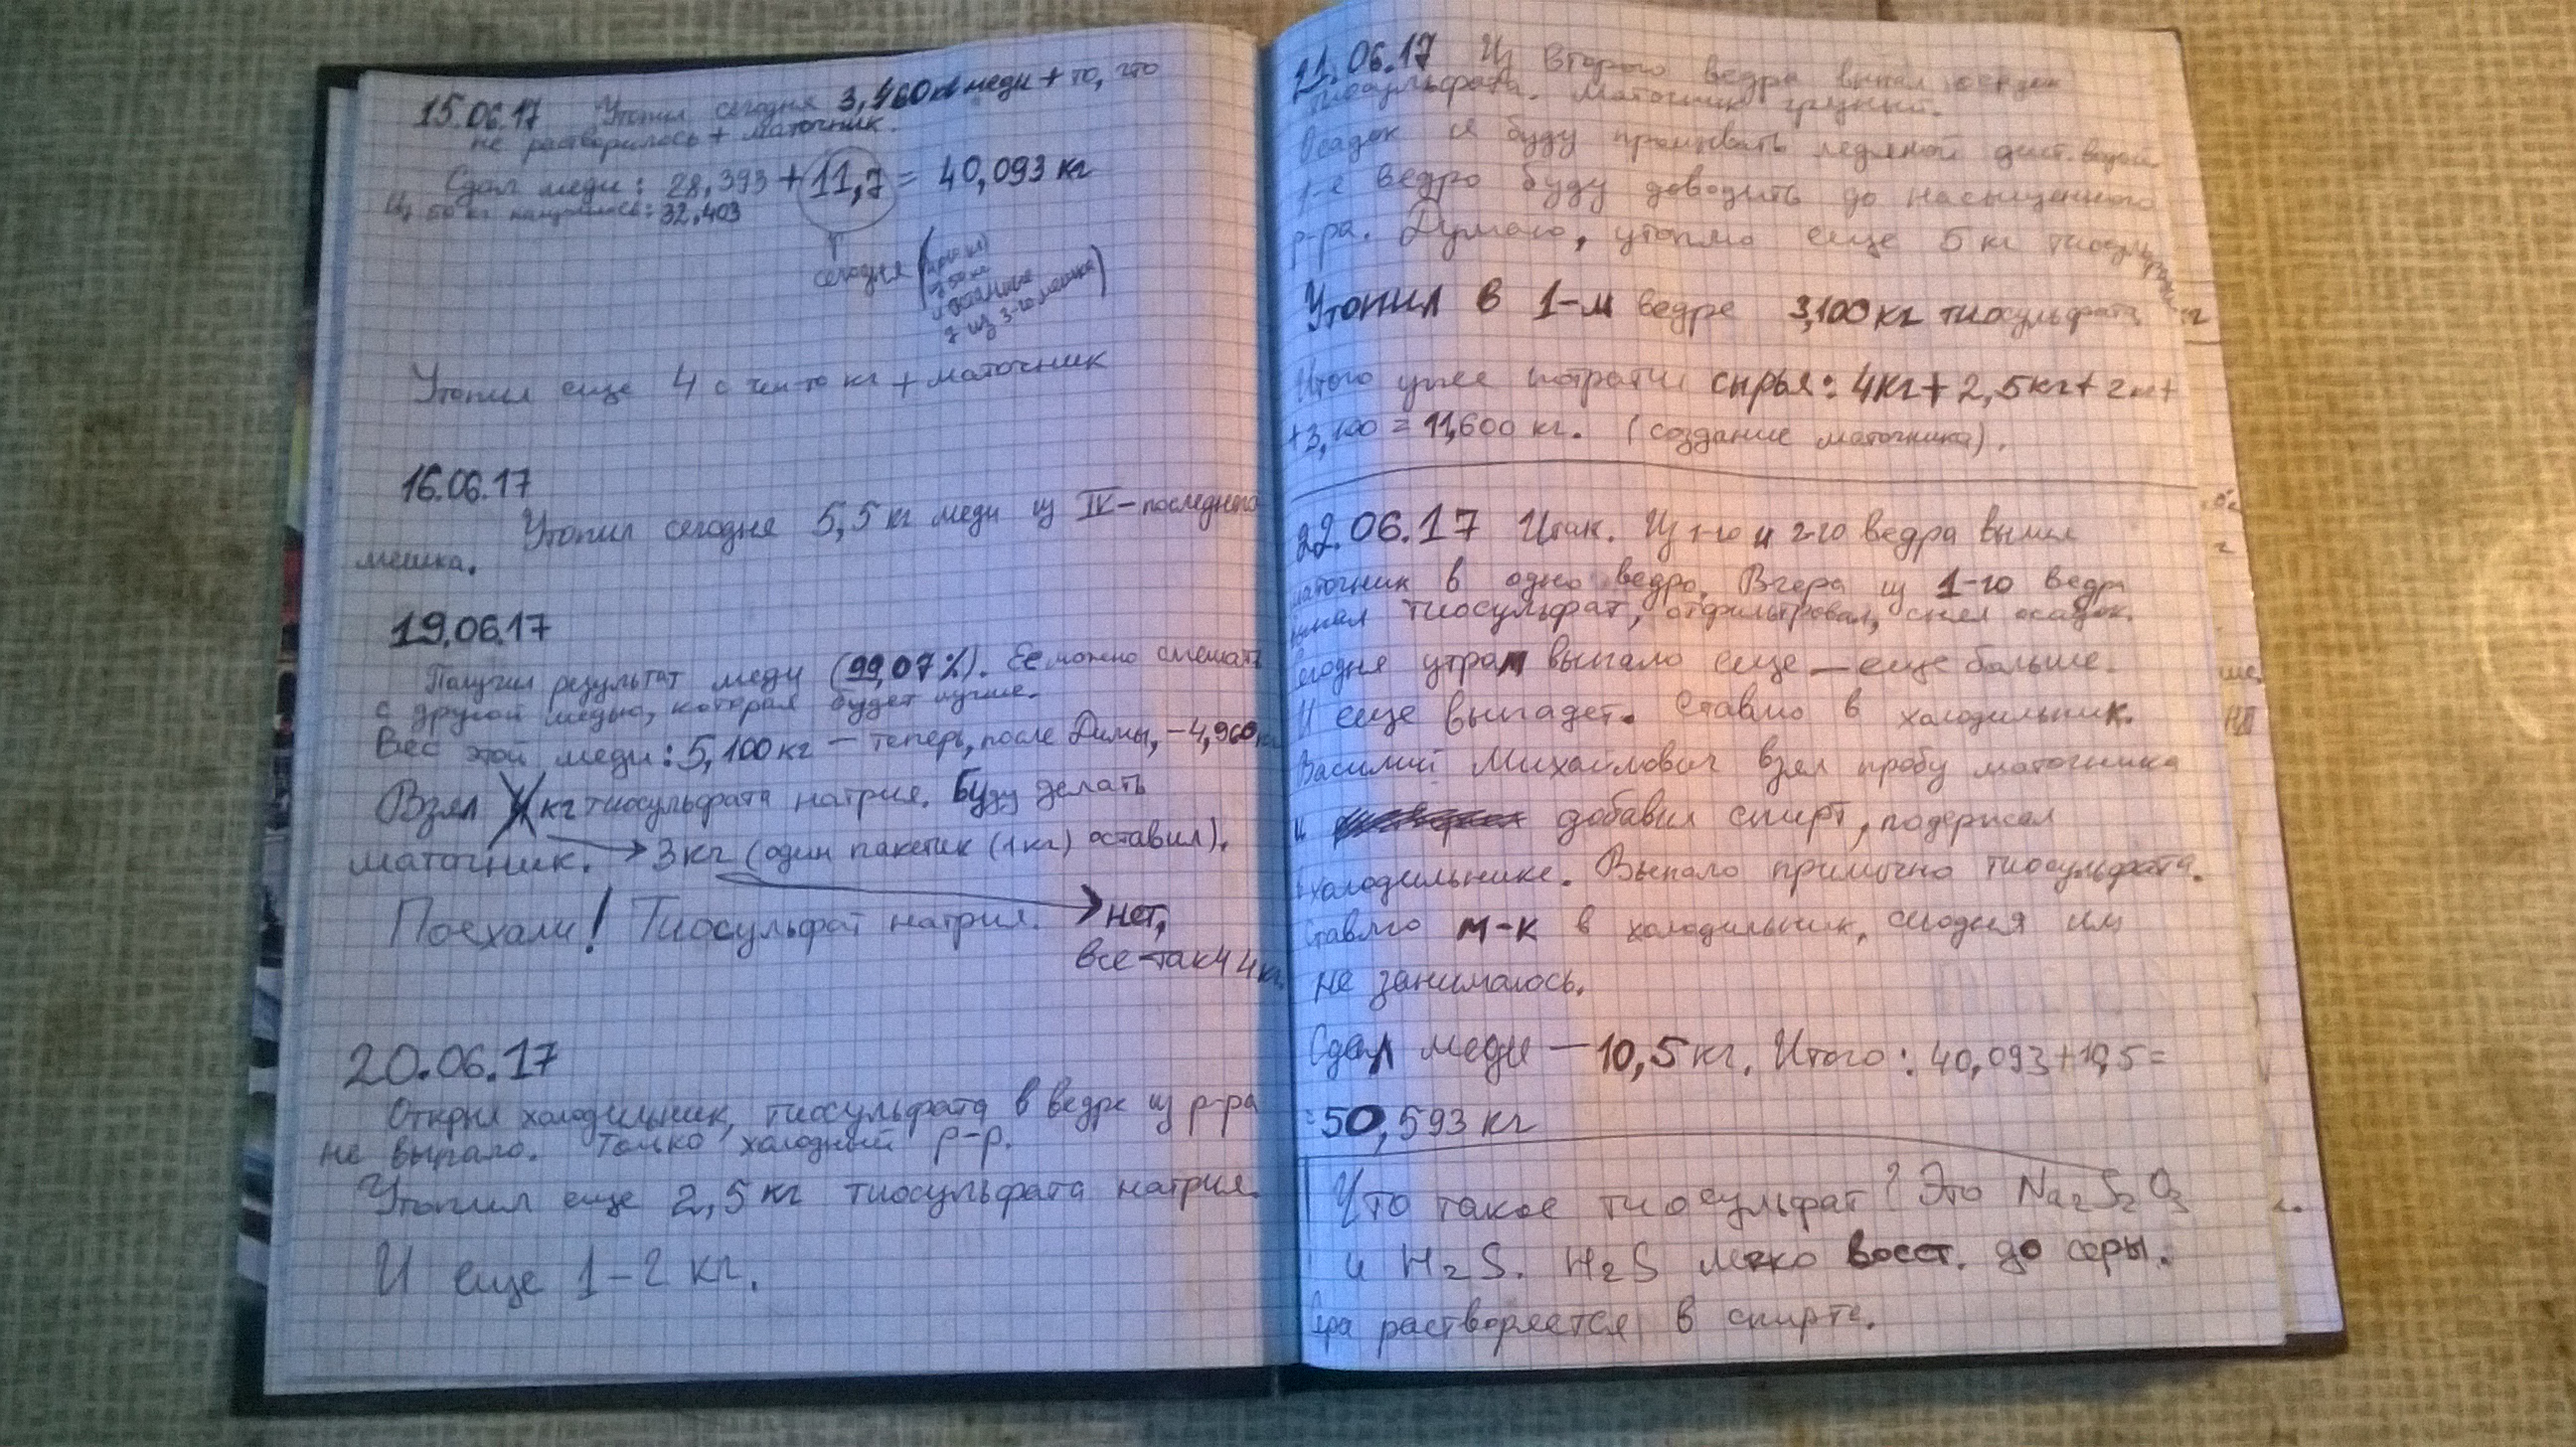 15.06.17 Утопил сегодня 3,460 кг меди + то, что
не растворилось + маточник.
Сдал меди: 28,393 + 11,7 = 40,093 кг
Из 50 кг получилось: 32,403
сегодня (
из 50 кг
и остальные
из 3-го мешка)
Утопил еще 4 с чем-то кг + маточник
16.06.17
Утопил сегодня 5,5 кг меди из IV-последнего
мешка.
19.06.17
Получил результат меди (99,07%). Ее можно смешать
с другой медью, которая будет лучше.
Вес этой меди: 5,100 кг – теперь, после Димы, – 4,960 кг
Взял 4 кг тиосульфата натрия. Буду делать
маточник. → 3 кг (один пакетик (1 кг) оставил).
Поехали! Тиосульфат натрия. → нет,
все-таки 4 кг.
20.06.17
Открыл холодильник, тиосульфата в ведре из р-ра
не выпало. Только холодный р-р.
Утопил еще 2,5 кг тиосульфата натрия.
И еще 1–2 кг.
21.06.17 Из второго ведра выпал осадок
тиосульфата. Маточник грязный.
Осадок я буду промывать ледяной дист. водой.
1-е ведро буду доводить до насыщенного
р-ра. Думаю, утоплю еще 5 кг тиосульфата
Утопил в 1-м ведре 3,100 кг тиосульфата
Итого уже потратил сырья: 4кг + 2,5кг + 2кг +
+ 3,100 = 11,600 кг. (создание маточника).
22.06.17 Итак. Из 1-го и 2-го ведра вылил
маточник в одно ведро. Вчера из 1-го ведра
выпал тиосульфат, отфильтровал, снял осадок.
Сегодня утром выпало еще – еще больше.
И еще выпадет. Ставлю в холодильник.
Василий Михайлович взял пробу маточника
и добавил спирт, подержал
в холодильнике. Выпало прилично тиосульфата.
Ставлю м-к в холодильник, сегодня им
не занимаюсь.
Сдал меди – 10,5 кг. Итого: 40,093 + 10,5 =
= 50,593 кг
Что такое тиосульфат? Это Na2S2O3
и H2S. H2S легко восст. до серы.
Сера растворяется в спирте.